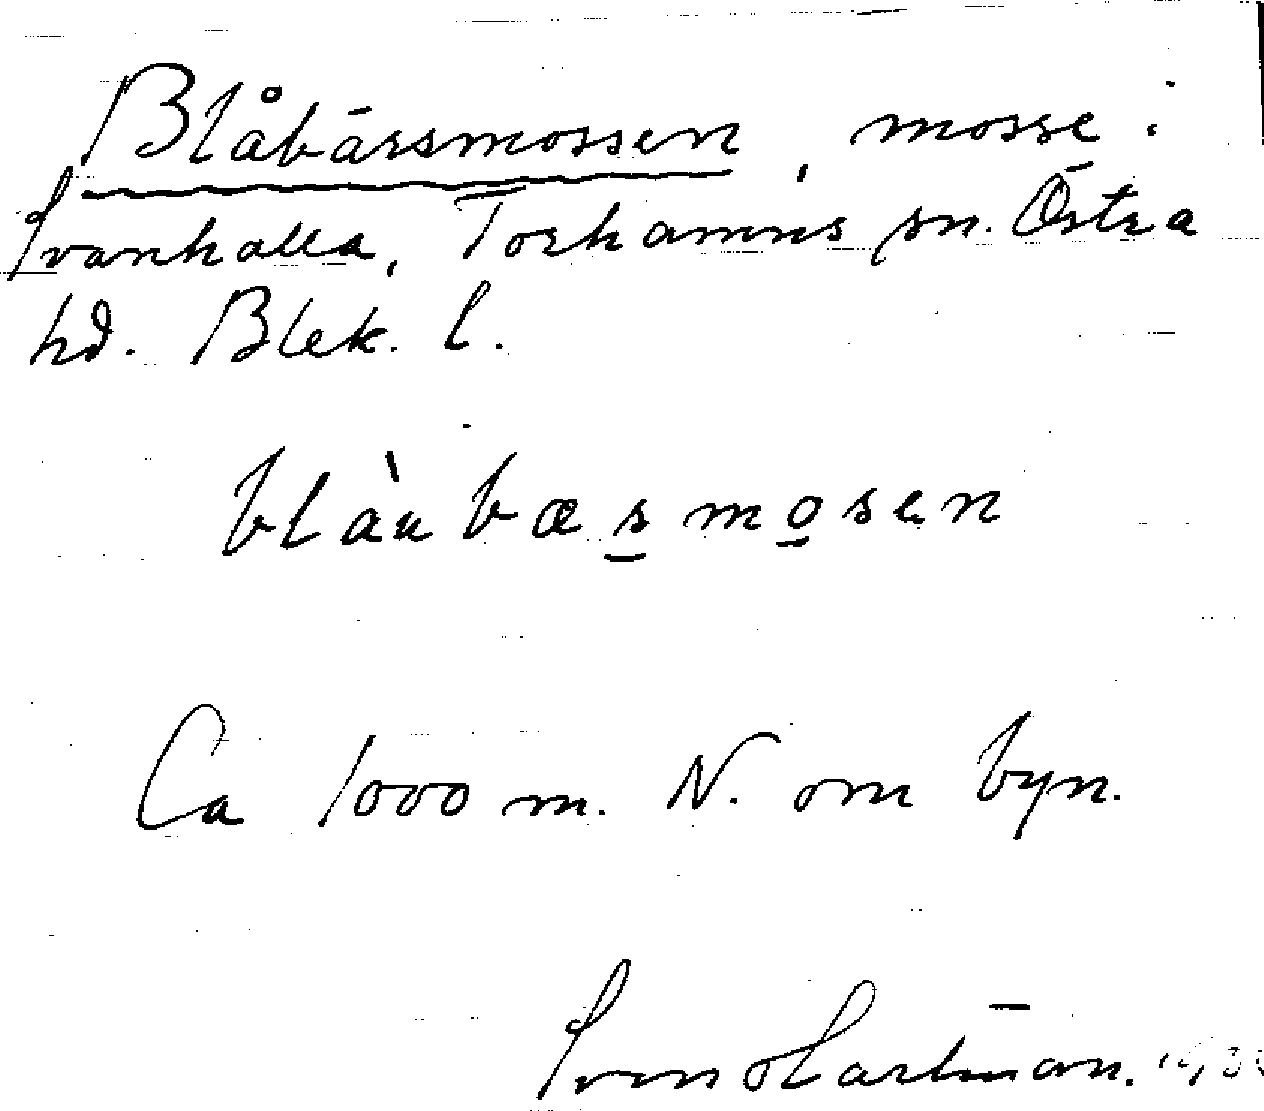 Blåbärsmossen, mosse i
Svanhalla, Torhamns sn. Östra
hd. Blek. l.
blàu bæsmosen
Ca 1000 m. N. om byn.
Sven Hartman.